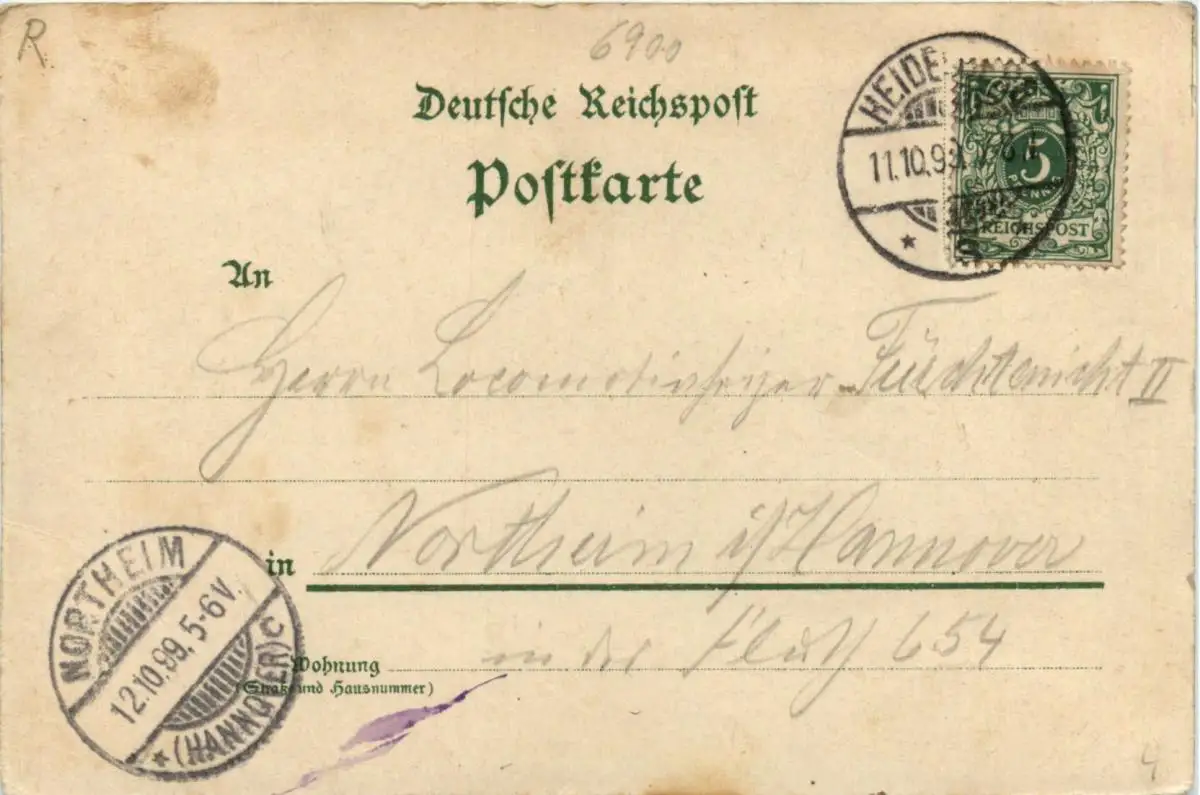 R
6900
Deutsche Reichspost
Postkarte
HEIDELBERG
11.10.99.
5
REICHSPOST
An
Herrn Locomotivheizer Fürchtenicht II
in Northeim i/Hannover
Wohnung in der Fluth 654
(Straße und Hausnummer)
NORTHEIM
12.10.99. 5-6V.
* (HANNOVER) C
4